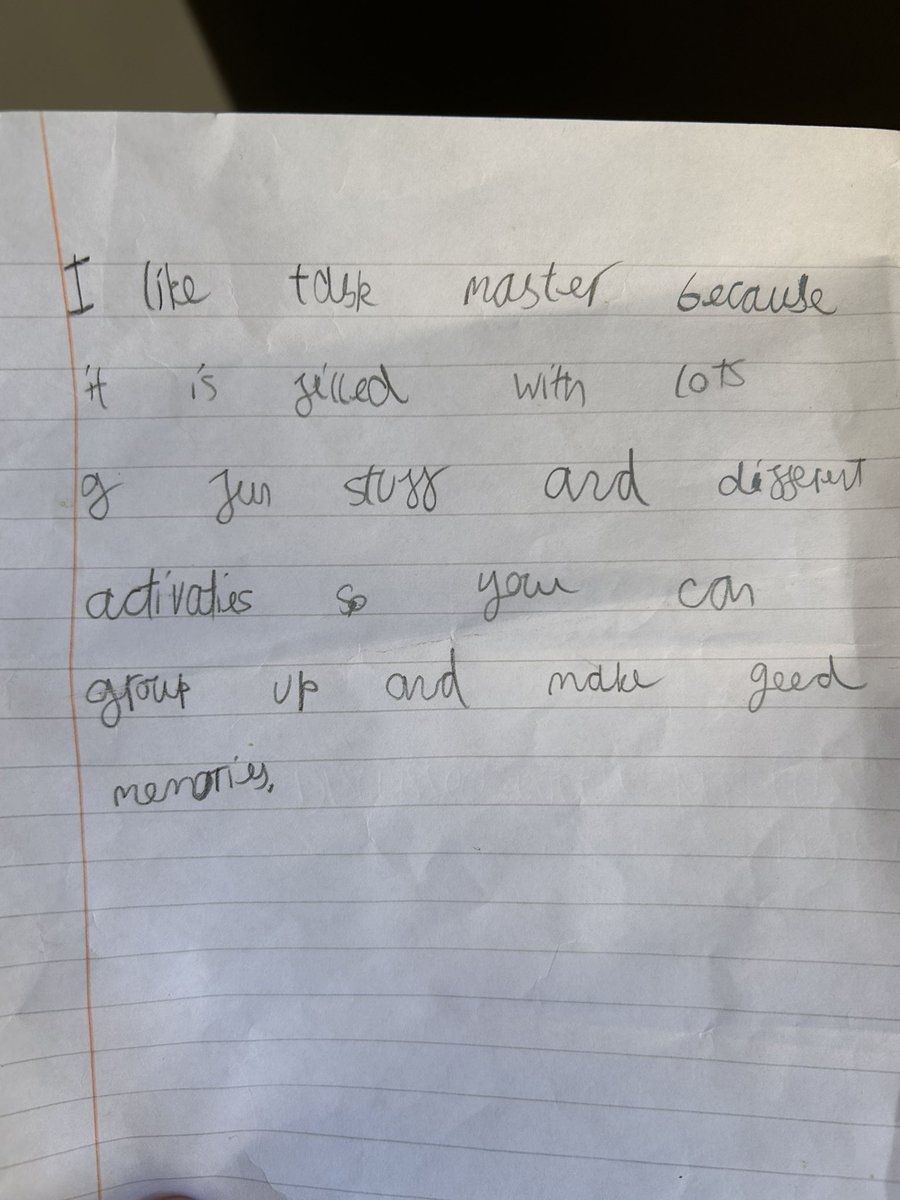 I like task master because
it is filled with lots
of fun stuff and different
activaties so you can
group up and make good
memories.